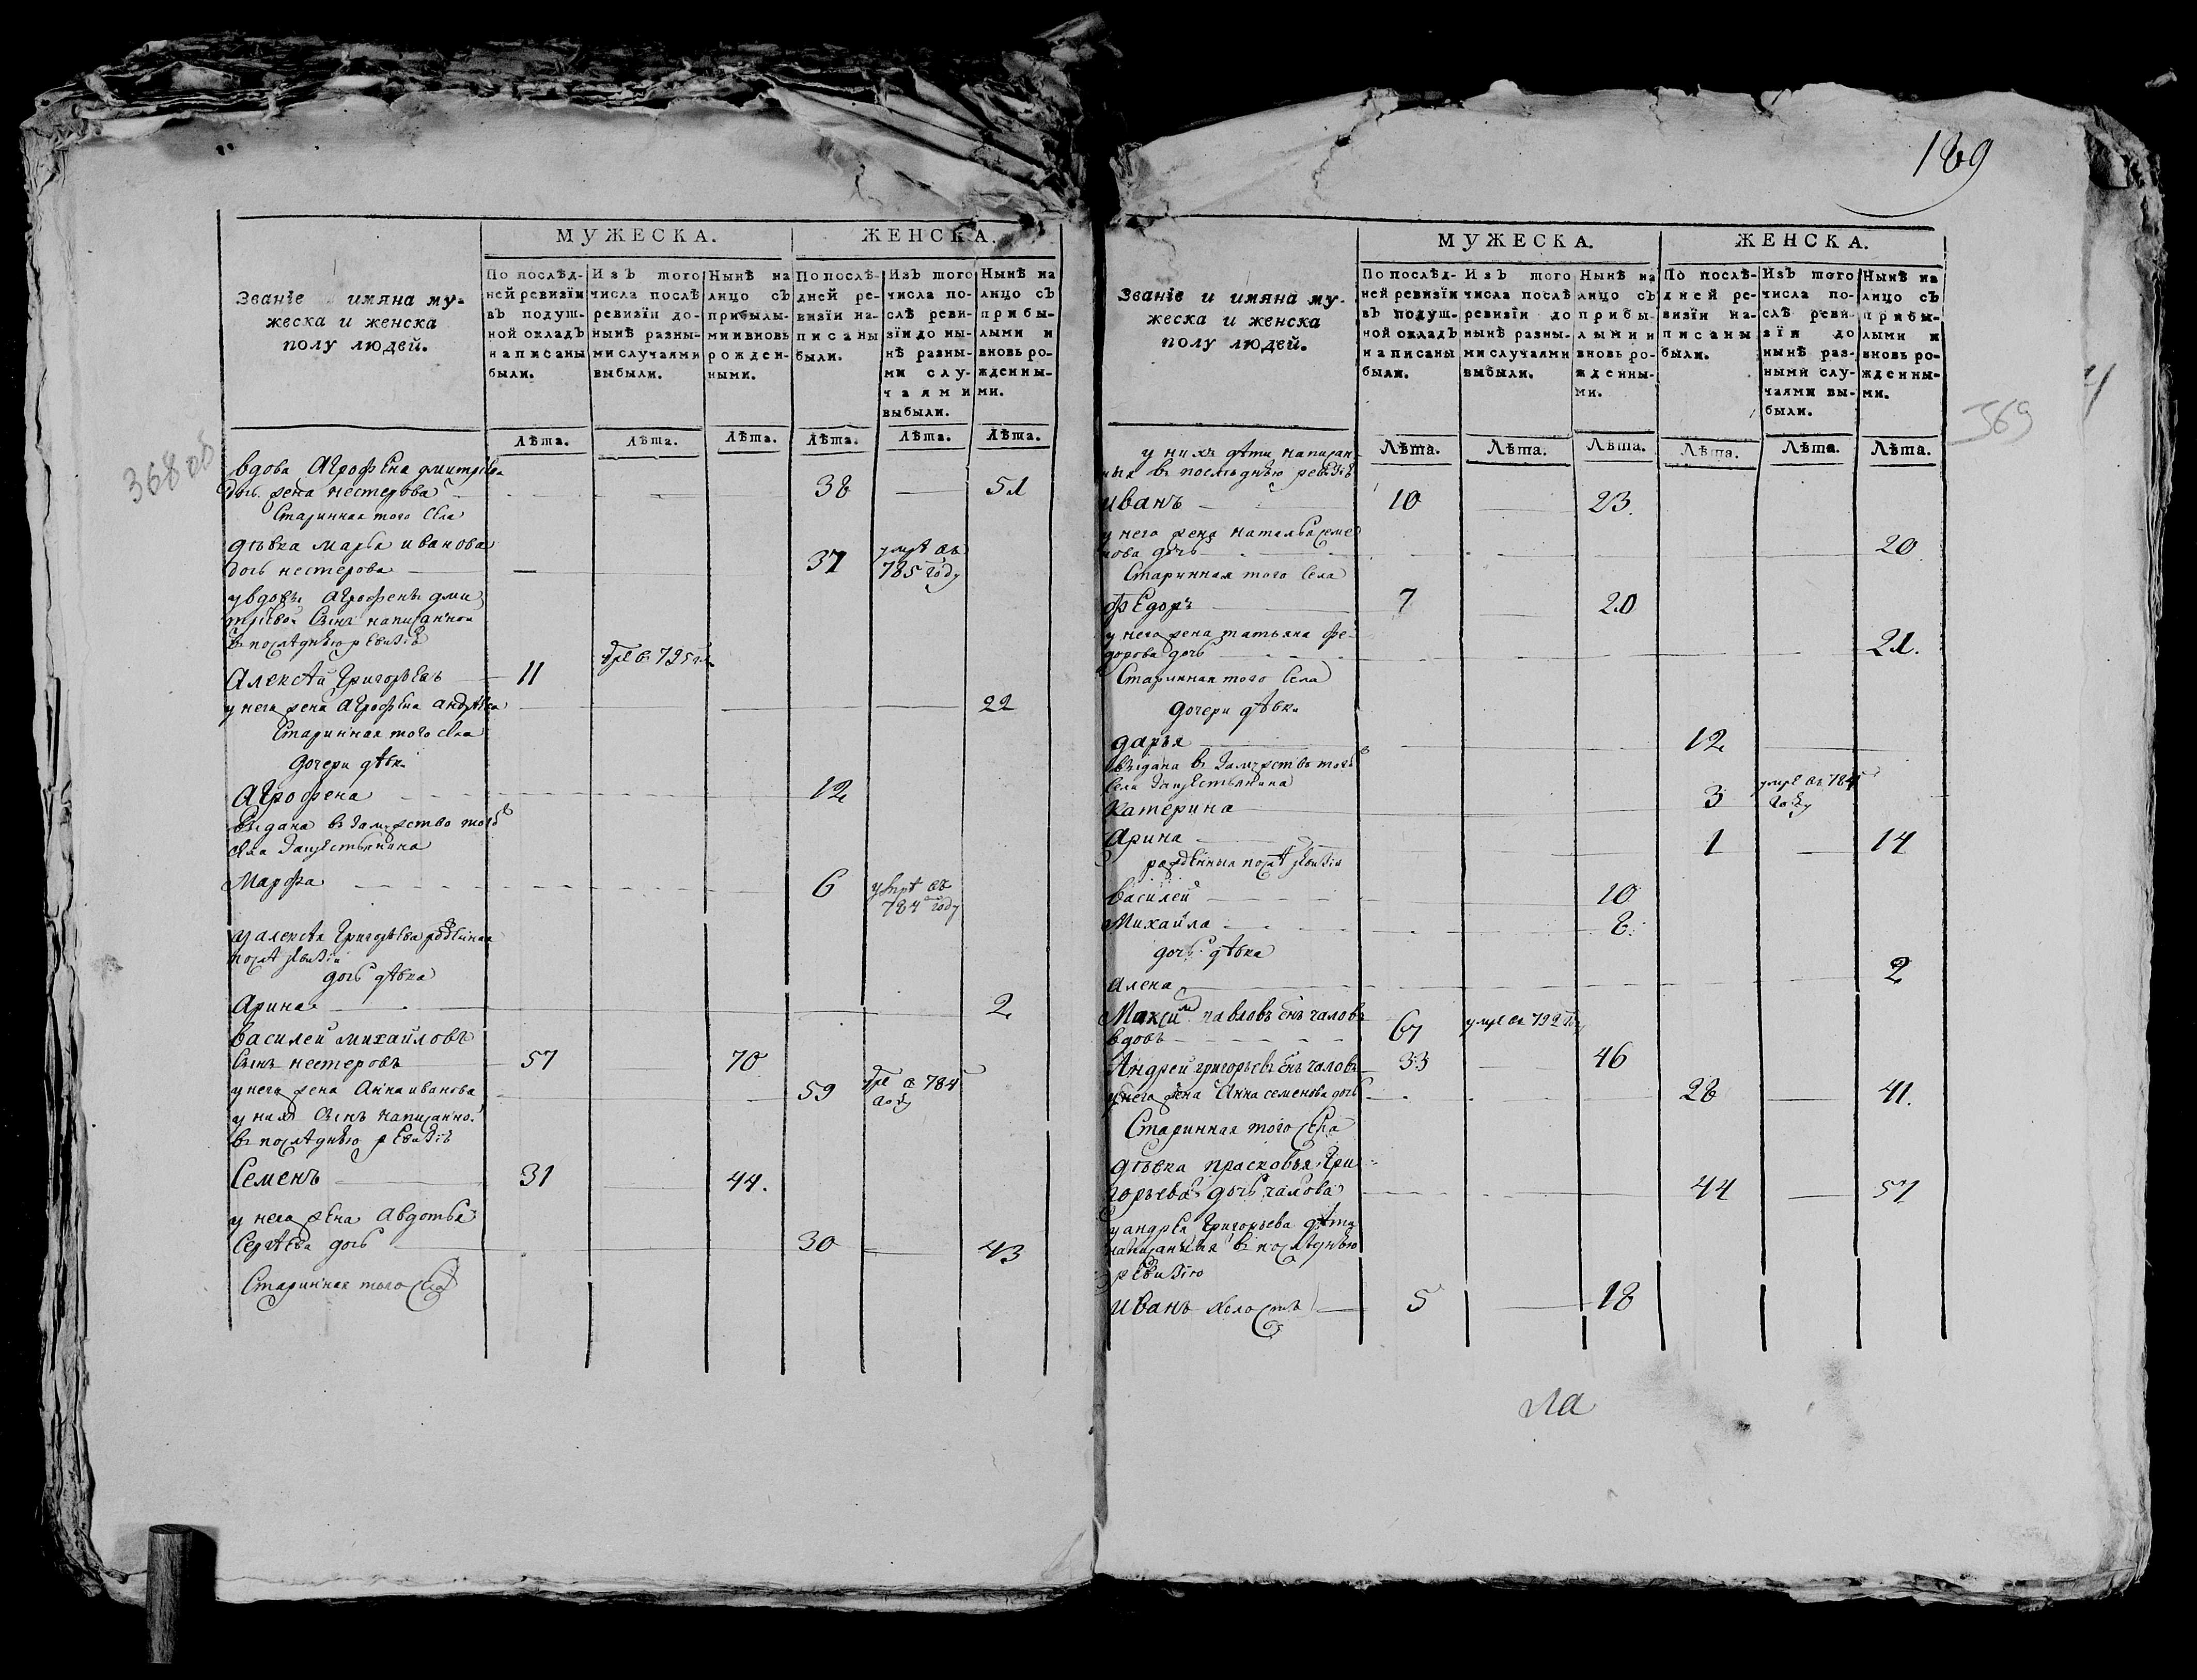 368 об
МУЖЕСКА. ЖЕНСКА.
Званіе и имяна му-
жеска и женска
полу людей.
По послѣд-
ней ревизіи
въ подуш-
ной окладъ
написаны
были.
Изъ того
числа послѣ
ревизіи до-
нынѣ разны-
ми случаями
выбыли.
Нынѣ на
лицо съ
прибылы-
ми и вновь
рожден-
ными.
По послѣ-
дней ре-
визіи на-
писаны
были.
Изъ того
числа по-
слѣ реви-
зіи до ны-
нѣ разны-
ми слу-
чаями
выбыли.
Нынѣ на
лицо съ
прибы-
лыми и
вновь ро-
жденны-
ми.
Лѣта. Лѣта. Лѣта. Лѣта. Лѣта. Лѣта.
вдова Агрофена дмитрева
дочь жена нестерова 38 51
Старинная того села
дѣвка марья иванова
дочь нестерова 37 умрѣ въ 785 году
у вдовы Агрофены дми
тріевой сынъ написанной
в послѣднѣю ревизіѣ
Алексѣй Григорьевъ 11
у него жена Агрофена андрѣева 22
Старинная того села
дочери дѣвки
Агрофена 12
выдана въ замужство того
села за крестьянина
Марфа 6 умрѣ въ 784 году
у алексѣя Григорьева рожденная
послѣ ревизіи
дочь дѣвка
Арина 2
василей михайловъ
сынъ нестеровъ 57 70
у него жена Анна иванова 59 784 году
у нихъ сынъ написанной
въ послѣднѣю ревизіѣ
Семенъ 31 44.
у него жена Авдотья
Сергѣева дочь 30 43
Старинная того села
189
369
МУЖЕСКА. ЖЕНСКА.
Званіе и имяна му-
жеска и женска
полу людей.
По послѣд-
ней ревизіи
въ подуш-
ной окладъ
написаны
были.
Изъ того
числа послѣ
ревизіи до
нынѣ разны-
ми случаями
выбыли.
Нынѣ на
лицо съ
прибы-
лыми и
вновь ро-
жденны-
ми.
По послѣ-
дней ре-
визіи на-
писаны
были.
Изъ того
числа по-
слѣ реви-
зіи до
нынѣ раз-
ными слу-
чаями вы-
были.
Нынѣ на
лицо съ
прибы-
лыми и
вновь ро-
жденны-
ми.
Лѣта. Лѣта. Лѣта. Лѣта. Лѣта. Лѣта.
у нихъ дѣти написан
ныя в послѣднѣю ревизіѣ
иванъ 10 23.
у него жена наталья семе
нова дочь 20
Старинная того села
Федоръ 7 20
у него жена татьяна фе-
дорова дочь 21.
Старинная того села
дочери дѣвки
дарья 12
выдана в замужство того
села за крестьянина
катерина 3 умре въ 784 году
Арина 1 14
рожденныя послѣ ревизіи
василей 10
Михайла 8.
дочь дѣвка
алена 2
Максимъ павловъ снъ чаловъ
вдовъ 67 умре въ 792 году
Андрей григорьевъ снъ чаловъ 33 46
у него жена Анна семенова дочь 28 41.
Старинная того села
дѣвка прасковья Гри
горьева дочь чалова 44 57
у андрея Григорьева дѣти
написанныя в послѣднѣю
ревизію
иванъ холостъ 5 18
ла